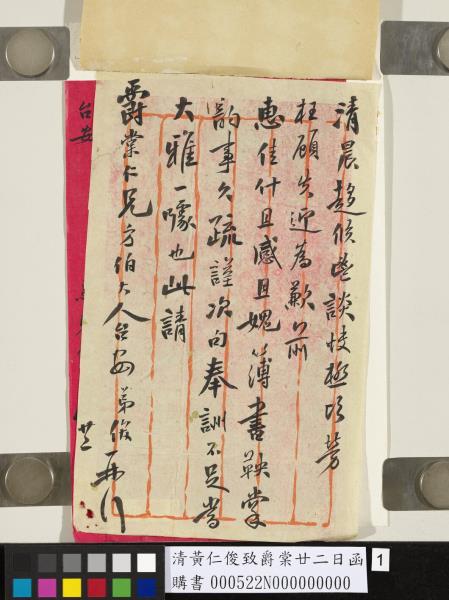 清晨趨候鬯談快極頃勞
枉顧失迎為歉前
惠佳什且感且媿簿書鞅掌
韵事久疏謹次句奉詶不足當
大雅一噱也此請
爵棠仁兄方伯大人台安弟俊
台安
清黃仁俊致爵棠廿二日函
購書 000522N000000000
1